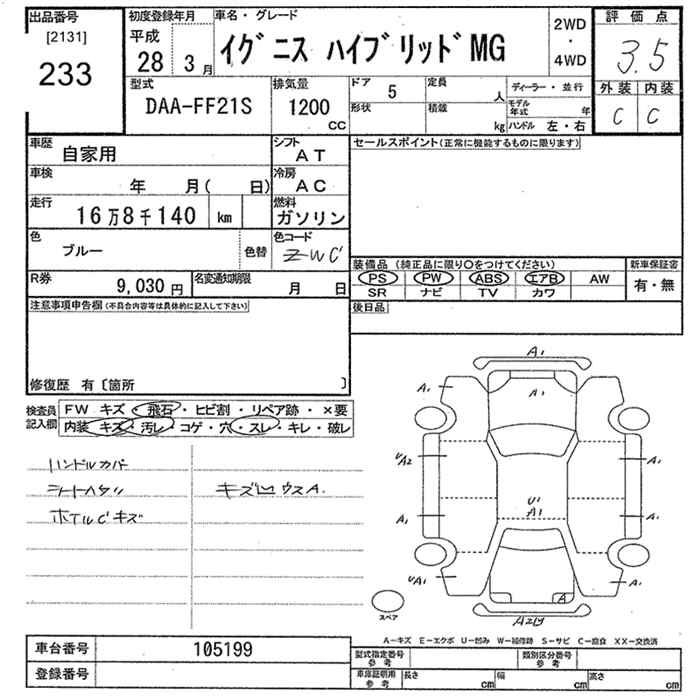 出品番号
[2131]
233
初度登録年月
平成
28 3月
車名・グレード
イグニス ハイブリッド MG
2WD
・
4WD
評価点
3.5
外装 内装
C C
型式
DAA-FF21S
排気量
1200
CC
ドア 5
定員 人
形状
積載 kg
ディーラー・並行
モデル年式 年
ハンドル 左・右
車歴 自家用
シフト AT
セールスポイント(正常に機能するものに限ります)
車検 年 月( 日)
冷房 AC
走行 16万8千140 km
燃料 ガソリン
色 ブルー 色替
色コード ZWC
装備品 (純正品に限り○をつけてください)
新車保証書
PS PW ABS エアB AW
SR ナビ TV カワ
有・無
R券 9,030円
名変通知期限 月 日
後日品
注意事項申告欄 (不具合内容等は具体的に記入して下さい)
修復歴 有〔箇所 〕
検査員記入欄
FW キズ・飛石・ヒビ割・リペア跡・×要
内装 キズ・汚レ・コゲ・穴・スレ・キレ・破レ
ハンドルカバー
シートハタリ
キズ凹ウスA.
ホイルCキズ
A1
A1
A1
UA2
A1
A1
U1
A1
A1
UA1
A1
A
A2凹
スペア
A-キズ E-エクボ U-凹み W-補修跡 S-サビ C-腐食 XX-交換済
車台番号 105199
登録番号
型式指定番号 参考
類別区分番号 参考
車庫証明用 参考
長さ cm
幅 cm
高さ cm